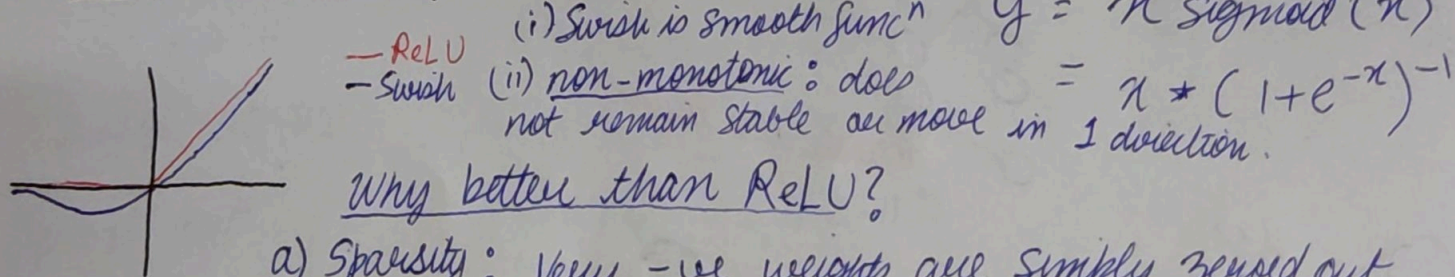 (i) Swish is smooth funcⁿ
y = x sigmoid (x)
— ReLU
— Swish
(ii) non-monotonic : does
not remain stable or move in 1 direction.
= x * (1+e^{-x})^{-1}
Why better than ReLU?
a) Sparsity : Very -ve weights are simply zeroed out